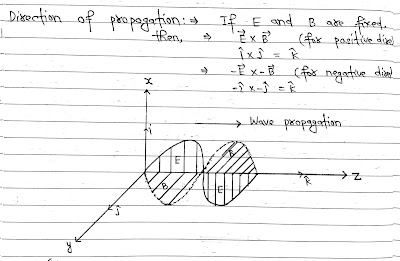 Direction of propagation:⇒ If E and B are fixed.
then, ⇒ E⃗ x B⃗ (for positive dirⁿ)
î x ĵ = k̂
⇒ -E⃗ x -B⃗ (for negative dirⁿ)
-î x -ĵ = k̂
X
î
Wave propagation
E
B
B
E
k̂
Z
ĵ
y